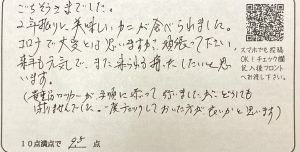 ごちそうさまでした。
2年振りに美味しいカニが食べられました。
コロナで大変とは思いますが、頑張って下さい。
来年も元気で、また来られる様にしたいと思
います。
(貴重品ロッカーが手前に戻って 行いましたが、どうしても
閉りませんでした。一度チェックしておいた方が良いかと思います)
スマホでも投稿
OK！チェック欄
記入後フロント
へお渡し下さい。
10点満点で 9.5 点